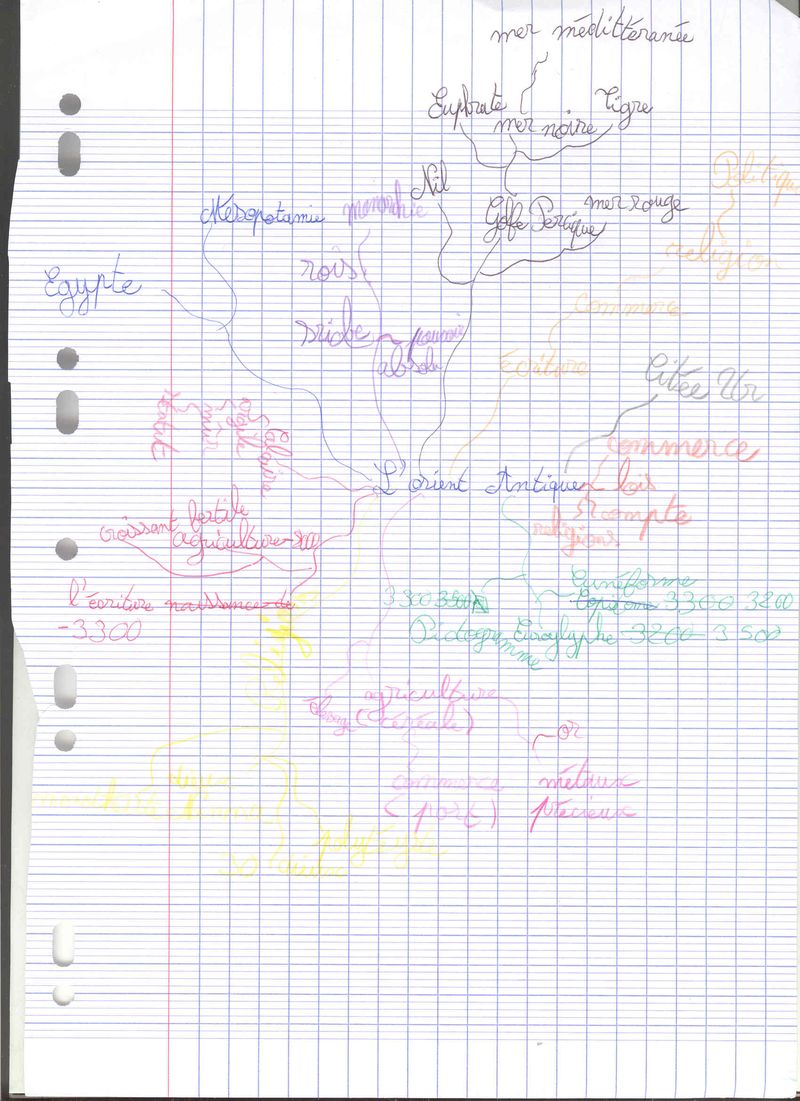 mer médittéranée
Euphrate
Tigre
mer noire
Nil
mer rouge
Golfe Persique
Politique
religion
Mésopotamie
monarchie
Egypte
rois
commerce
scribe
pouvoir
absolu
Ecriture
Citée Ur
commerce
L'orient Antique
lois
compte
religions
argile
croissant fertile
agriculture
l'écriture naissance de
-3300
Cunéiforme
3300 3200
3200 3500
Pictogramme
religion
agriculture
élevage
(céréale)
or
commerce
métaux
(port)
précieux
dieux
polythéiste
30 dieux